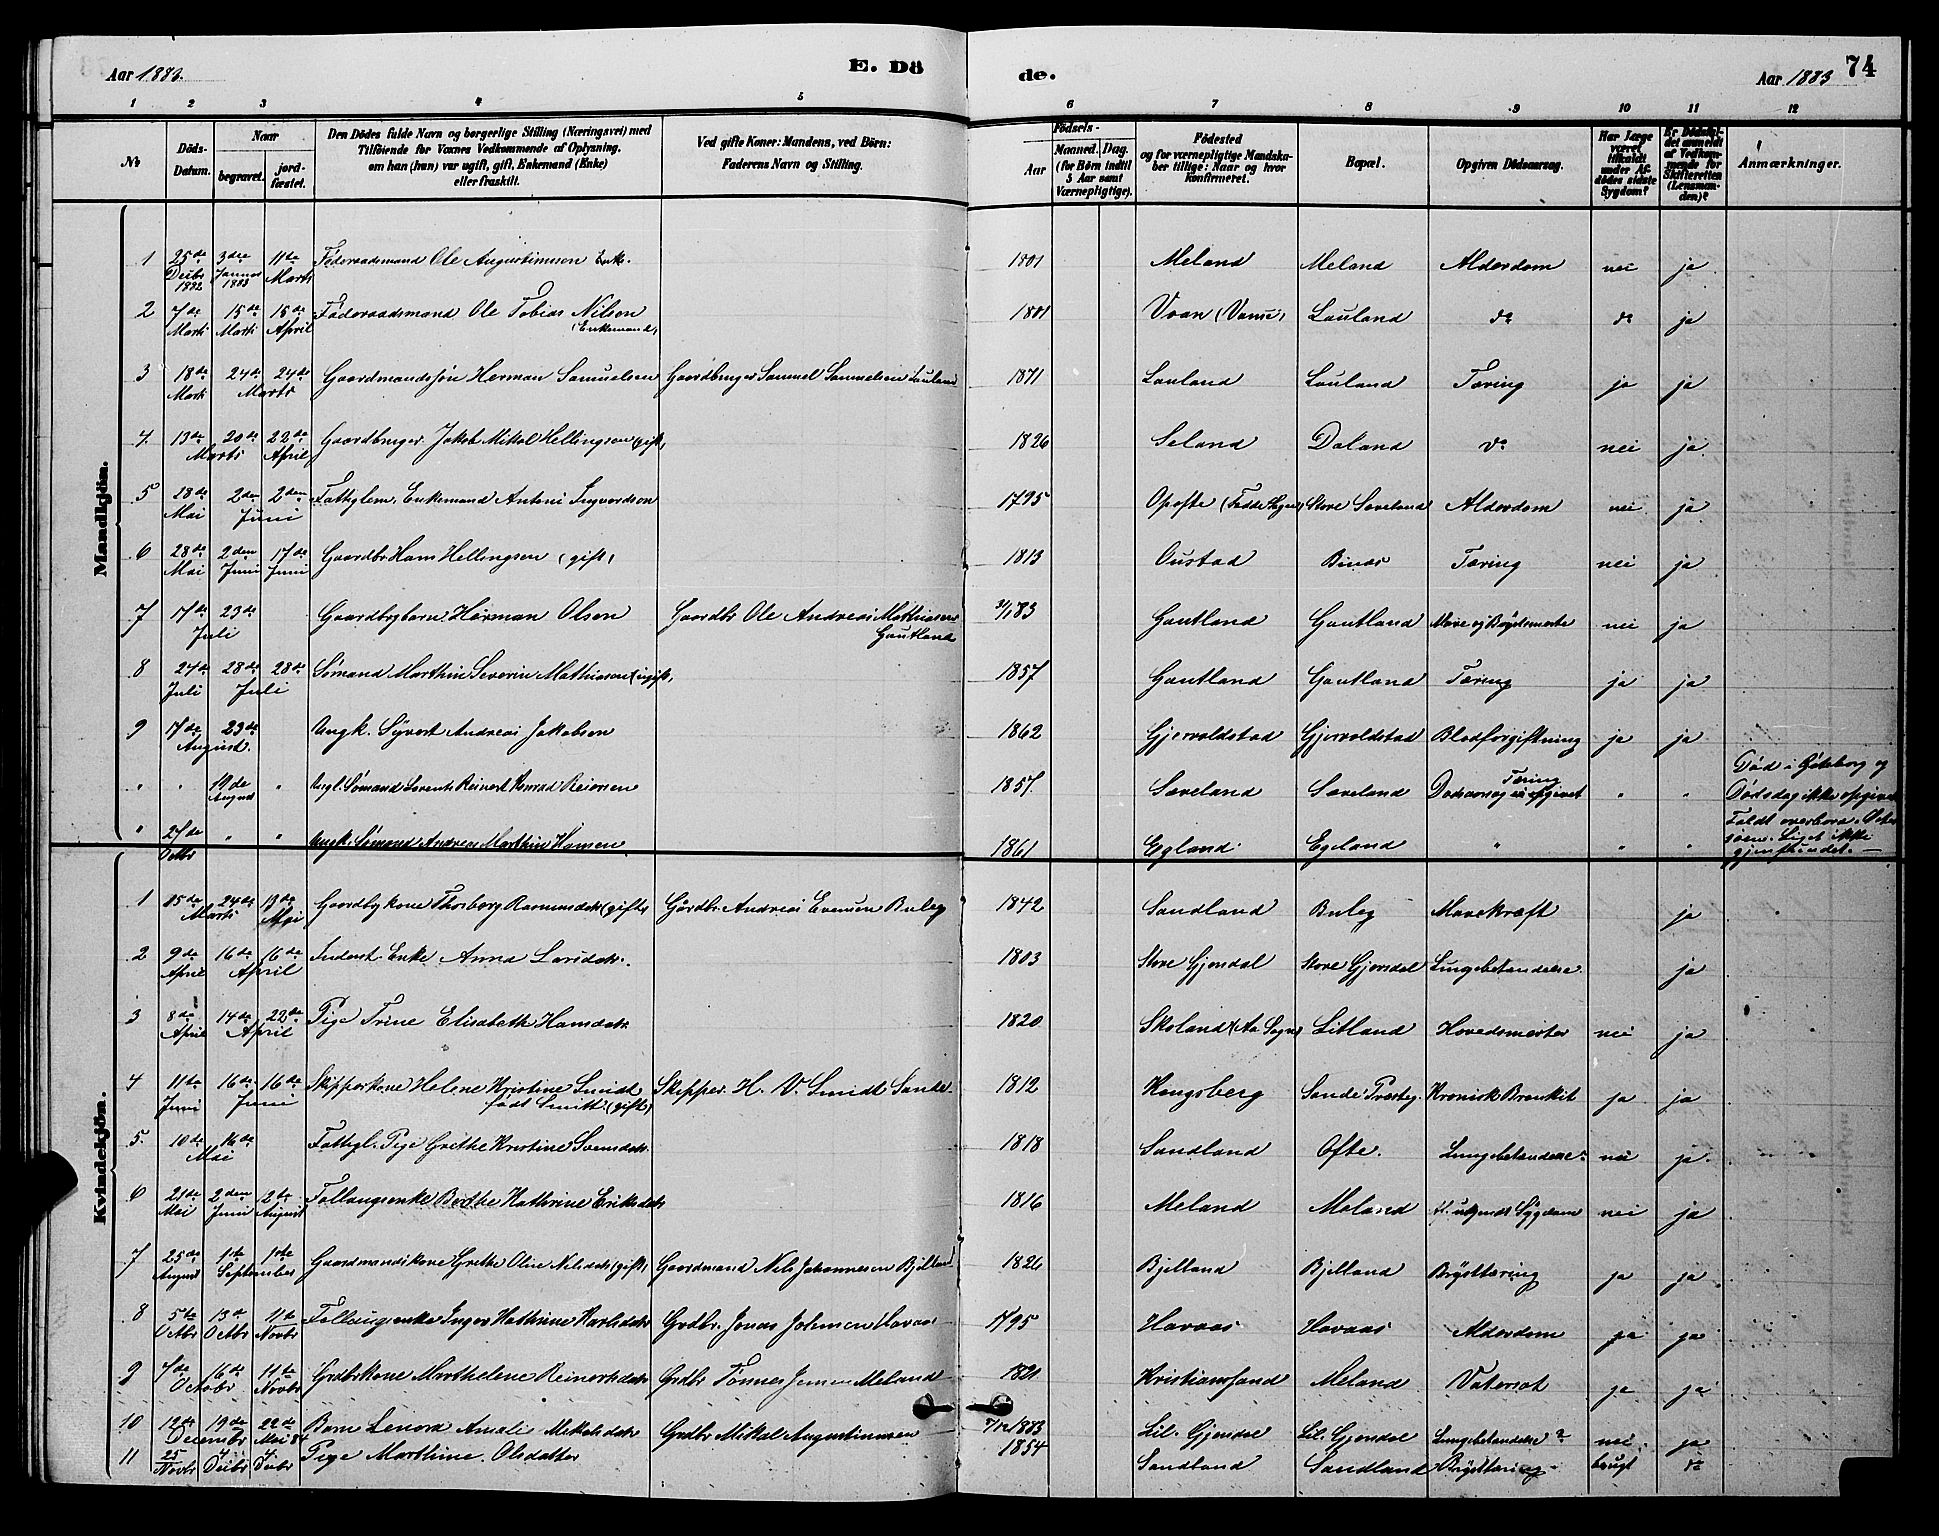 Aar 1883.
E. Dö
de.
Aar 1883
74
1 2 3 4 5 6 7 8 9 10 11 12
No
Döds-Datum.
Naar
begravet.
jord-fæstet.
Den Dödes fulde Navn og borgerlige Stilling (Næringsvei) med
Tilföiende for Voxnes Vedkommende af Oplysning,
om han (hun) var ugift, gift, Enkemand (Enke)
eller fraskilt.
Ved gifte Koner: Mandens, ved Börn:
Faderens Navn og Stilling.
Födsels-
Aar
Maaned. Dag.
(for Börn indtil
5 Aar samt
Værnepligtige).
Födested
og for værnepligtige Mandska-
ber tillige: Naar og hvor
konfirmeret.
Bopæl.
Opgiven Dödsaarsag.
Har Læge
været
tilkaldt
under Af-
dödes sidste
Sygdom?
Er Dödsfal-
det anmeldt
af Vedkom-
mende for
Skifteretten
(Lensman-
den)?
Anmærkninger.
Mandkjön.
1 25de Decbr 1882 3die Januar 1883 11te Marts Föderaadsmand Ole Augustinusen Enke. 1801 Meland Meland Alderdom nei ja
2 7de Marts 15de Marts 15de April Föderaadsmand Ole Tobias Nilsen (Enkemand) 1801 (Vanse) Lauland do do ja
3 18de Marts 24de 24de Marts Gaardmandssön Herman Samuelsen Gaardbruger Samuel Samuelsen Lauland 1871 Lauland Lauland Tæring ja ja
4. 13de 20de Marts 22de April Gaardbruger Jakob Mikal Hellingsen (gift) 1826 Seland Daland do nei ja
5 28de Mai 2den 2den Juni Fattiglem. Enkemand Antoni Ingvardsen 1795 Opofte (Fedde Sogn) Store Sæveland Alderdom nei ja
6 28de Mai 2den Juni 17de Juni Gaardbr Hans Hellingsen (gift) 1813 Oustad Tæring nei ja
7 17de 23de Juli Gaardbrgbarn Herman Olsen Gaardbr Ole Andreas Mathiasen Gautland 31/1 83 Gautland Gautland nei ja
8 24de Juli 28de 28de Juli Sömand Marthin Severin Mathiasen (ugift) 1857 Gautland Gautland Tæring ja ja
9 17de 23de August. Ungk. Syvert Andreas Jakobsen 1862 Gjervoldstad Gjervoldstad Blodforgiftning ja ja
" " 19de August " Ungk. Sömand Lorents Reinert Konrad Reiersen 1857. Sæveland Sæveland Dödsaarsag ei opgivet Tæring " " Död i Göteborg og Dödsdag ikke opgivet
" 27de Octbr " " Ungk. Sömand Andreas Marthin Hansen 1861 Egland Egeland " " " Faldt overbord. Liget ikke gjenfundet.
Kvindekjön.
1 15de 24de Marts 13de Mai Gaardbrkone Thorborg Rasmusdatr (gift) Gårdbr. Andreas Evensen Buleg 1842 Sandland Buleg Mavekræft ja
2 9de April 16de 16de April Inderst. Enke Anna Larsdatr. 1803 Store Gjendal Store Gjendal Lungebetændelse ja
3 8de April 14de 22de April Pige Trine Elisabeth Hansdatr 1820 Skoland (Aa Sogn) Litland Hovedsmerter nei ja
4 11te Juni 16de 16de Juni Skipperkone Helene Kristine Smidt födt Smitt (gift) Skipper H. V. Smidt Sande. 1812 Kongsberg Sande Præsteg. Kronisk Bronkit ja ja
5. 10de 16de Mai Fattigl. Pige Grethe Kristine Svensdatr. 1818 Sandland Ofte. Lungebetændelse nei ja
6 21de Mai 2den Juni 12te August Follaugsenke Berthe Kathrine Eriksdatr 1816 Meland Meland Af ukjendt Sygdom nei ja
7 25de August 1ste 1ste September Gaardmandskone Grethe Oline Nilsdatr (gift) Gaardmand Nils Johannesen Bjelland 1826 Bjelland Bjelland Brysttæring ja ja
8 5te Octbr 13de Octbr 11te Novbr Follaugsenke Inger Kathrine Karlsdatr Grdbr. Jonas Salomonsen Havaas 1795 Havaas Havaas Alderdom ja ja
9 7de 16de Octobr 11te Novbr Grdbrkone Marthelene Reinertsdatr Grdbr Tönnes Jensen Meland 1821 Kristiansand Meland Vatersot ja ja
10 12te 19de Decembr 22de Mai 84 Barn Lenora Amalie Mikalsdatr Grdbr Mikal Augustinusen /12 1883 Lil. Gjendal Lil. Gjendal Lungebetændelse? nei ja
11 25 Novbr 4 Decbr 4 Decbr Pige Marthine Olsdatter 1854 Sandland Sandland Brysttæring brugt do